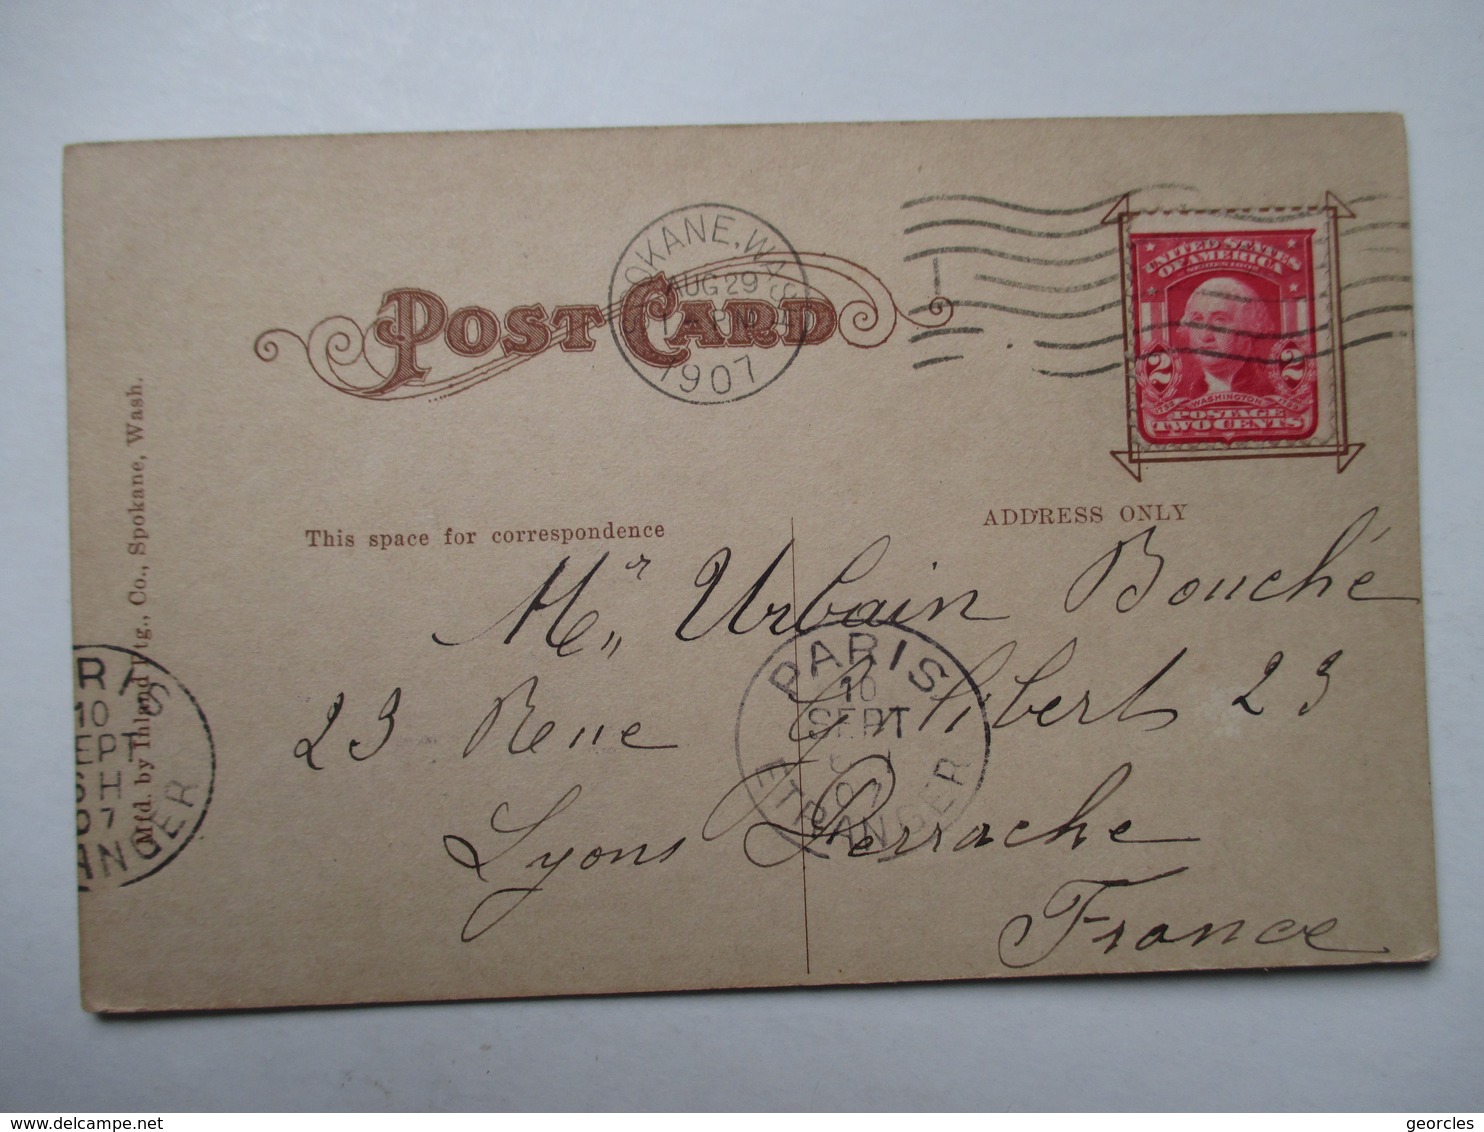 POST CARD
SPOKANE, WASH.
AUG 29
1907
UNITED STATES
OF AMERICA
SERIES 1902
2 2
1732 WASHINGTON 1799
POSTAGE
TWO CENTS
Mfd. by Inland Ptg., Co., Spokane, Wash.
This space for correspondence
ADDRESS ONLY
Mr Urbain Bouché
23 Rue Gilibert 23
Lyons Perrache
France
PARIS
10
SEPT
07
ETRANGER
RIS
10
EPT
6 H
07
ANGER
delcampe.net
georcles